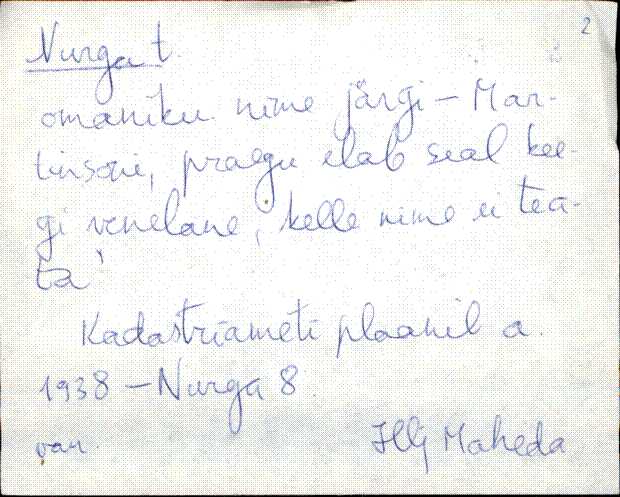 2
Nurga t.
omaniku nime järgi – Mar-
tinsoni, praegu elab seal kee-
gi venelane, kelle nime ei tea-
ta
Kadastriameti plaanil a.
1938 – Nurga 8.
van.
Maheda